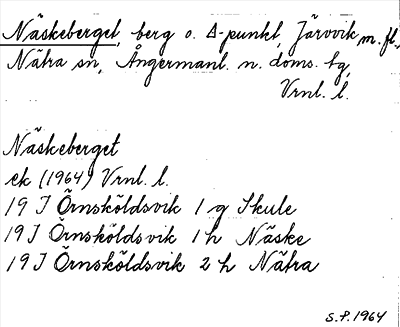 Näskeberget, berg o. Δ-punkt, Järvvik m. fl.,
Nätra sn, Ångermanl. n. doms. tg,
Vrnl. l.
Näskeberget
ek (1964) Vrnl. l.
19 J Örnsköldsvik 1 g Skule
19 J Örnsköldsvik 1 h Näske
19 J Örnsköldsvik 2 h Nätra
S.P. 1964